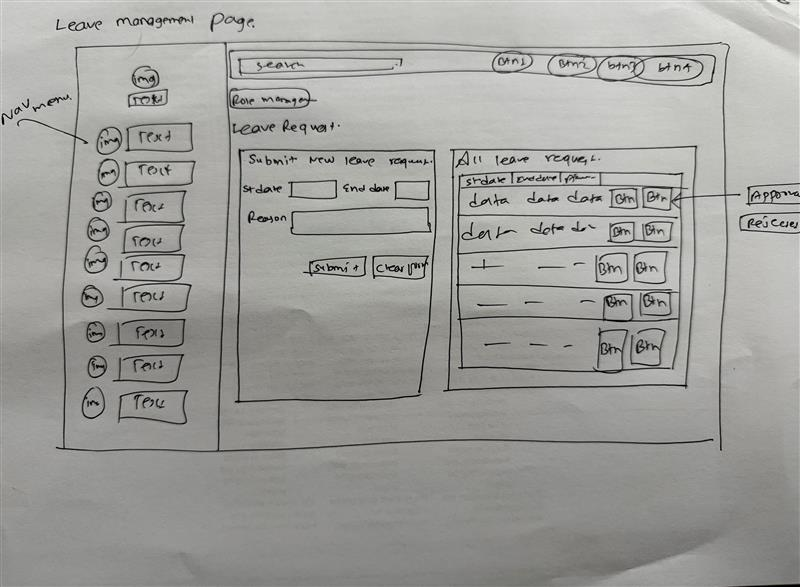 Leave management page.
Nav menu.
img
Text
img Text
img Text
img Text
img Text
img Text
img Text
img Text
img Text
img Text
search
Btn1 Btn2 btn3 btn4
Role manager
Leave Request.
Submit New leave request.
St date End date
Reason
Submit Clear
All leave request.
St date End date
data data data Btn Btn
data data Btn Btn
Btn Btn
Btn Btn
Btn Btn
Approva